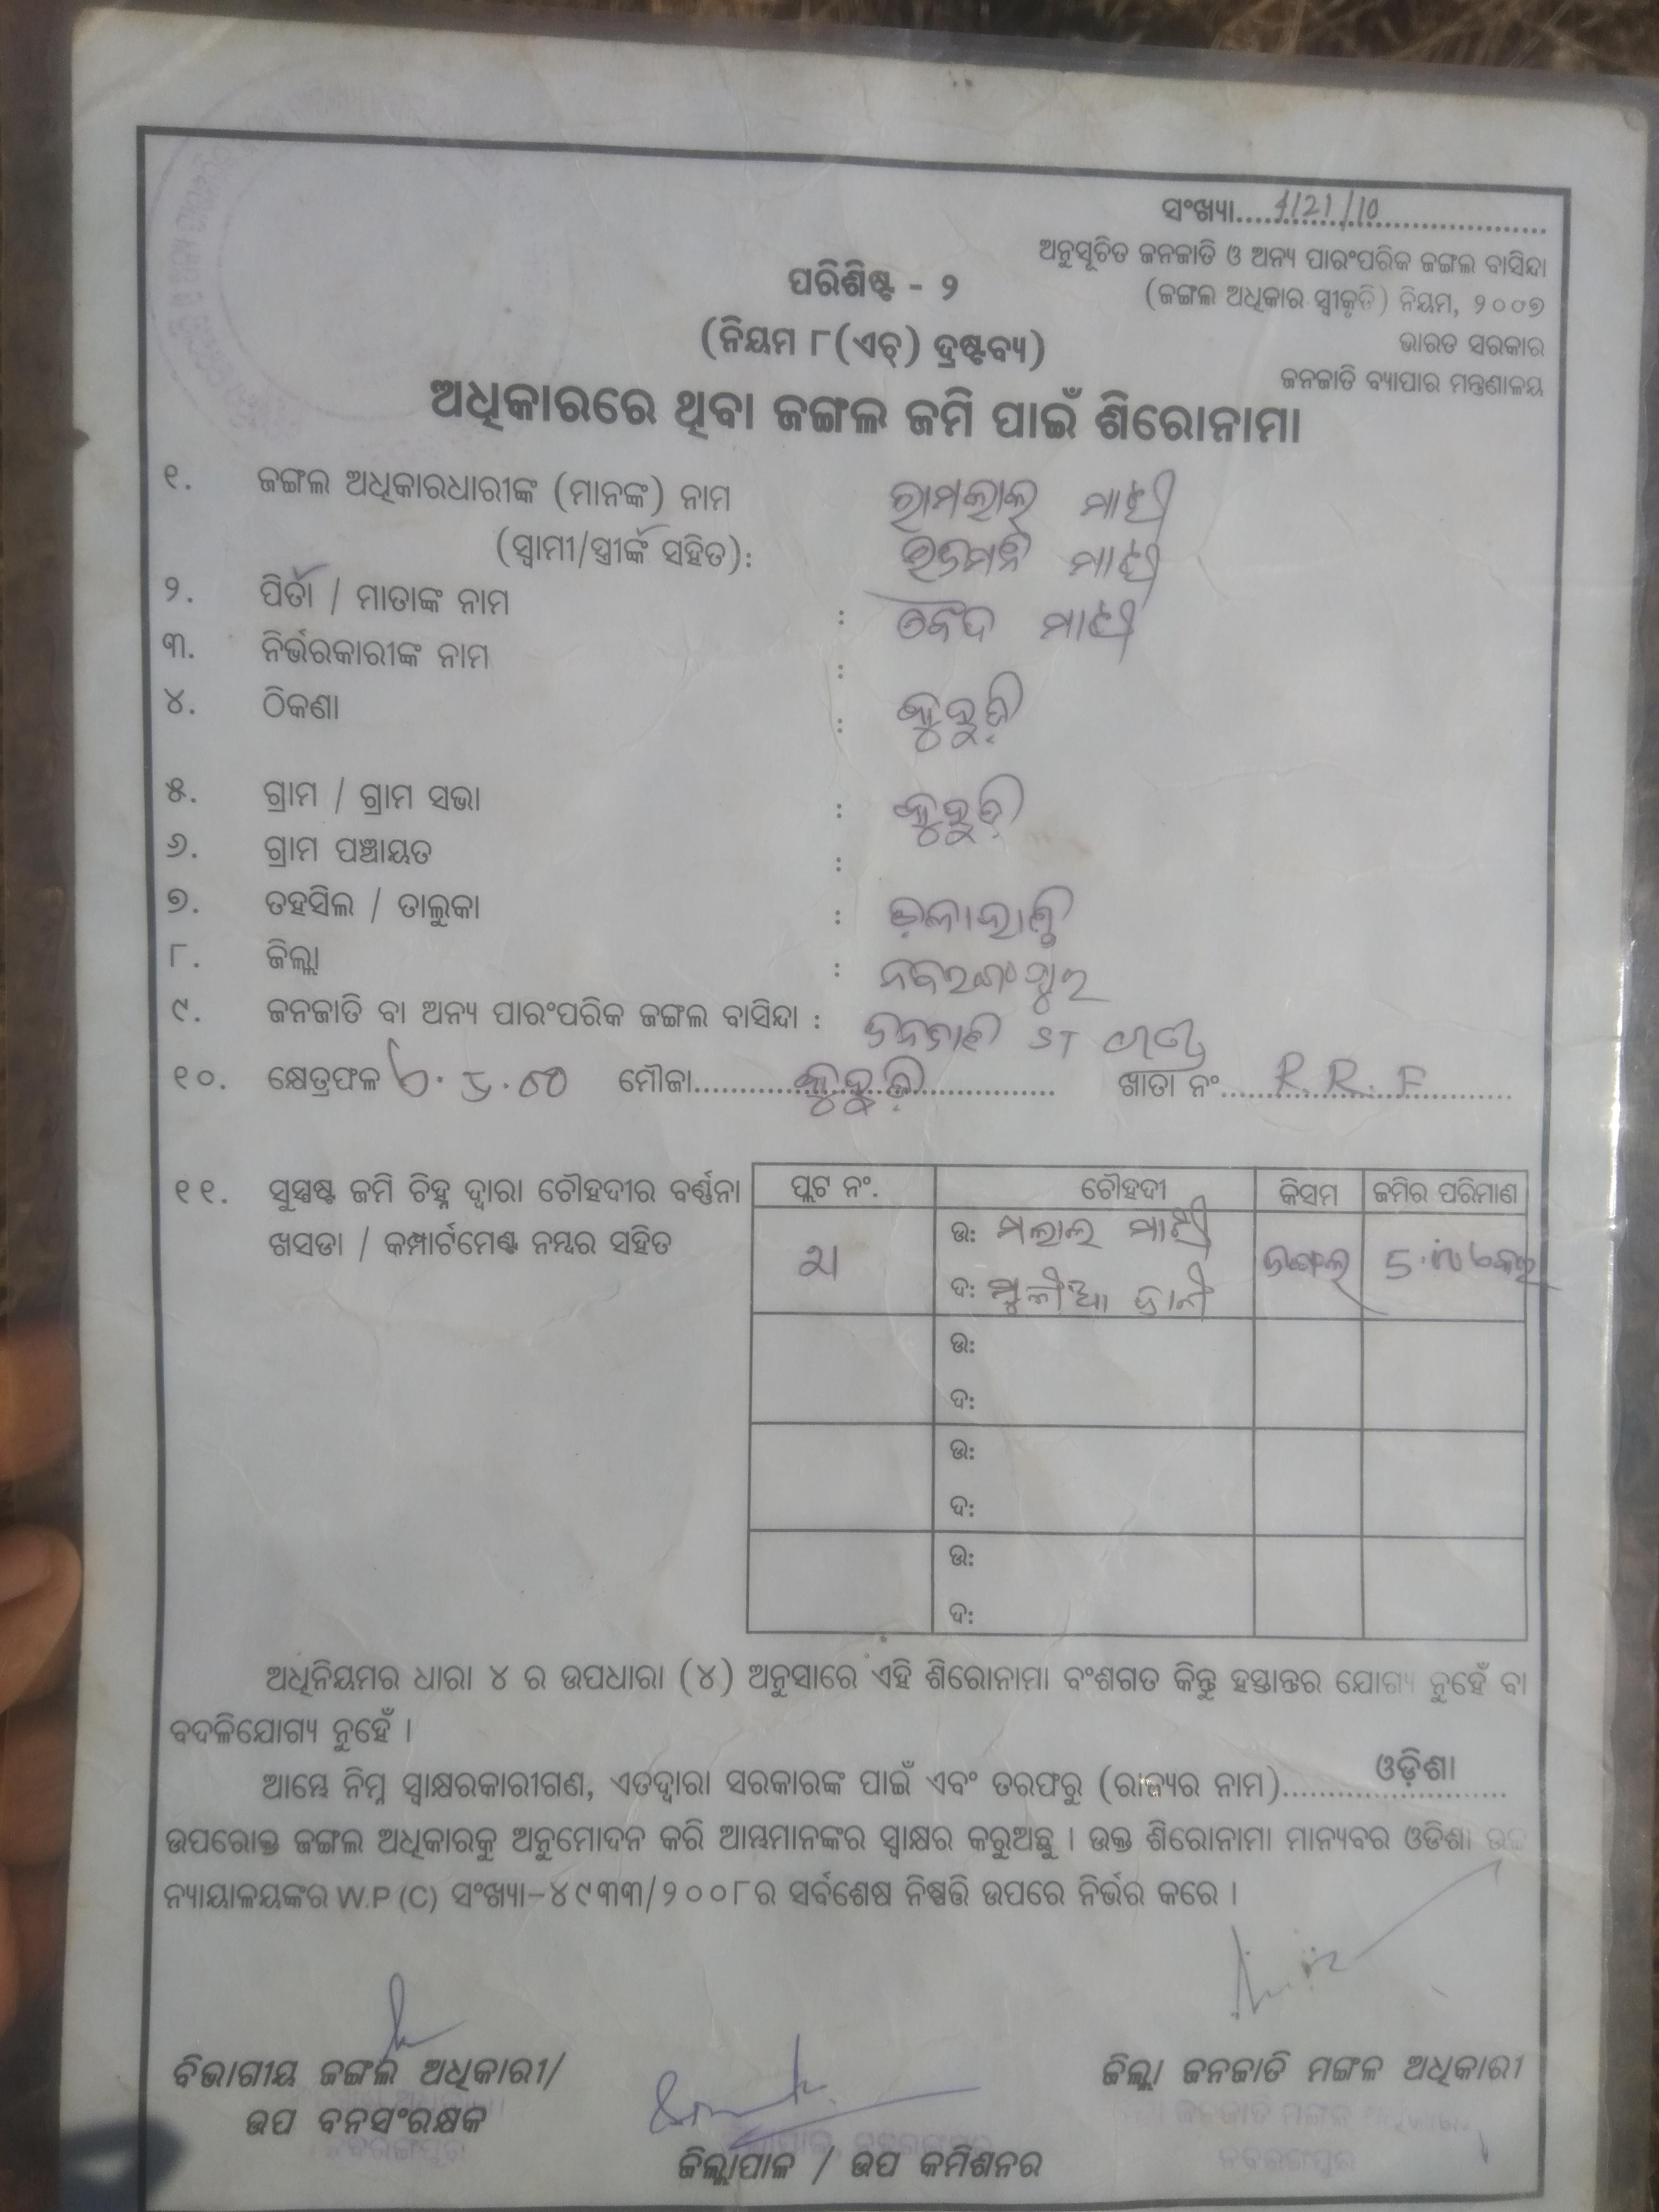 ସଂଖ୍ୟା.......4/21/10.......
ଅନୁସୂଚିତ ଜନଜାତି ଓ ଅନ୍ୟ ପାରଂପରିକ ଜଙ୍ଗଲ ବାସିନ୍ଦା
(ଜଙ୍ଗଲ ଅଧିକାର ସ୍ୱୀକୃତି) ନିୟମ, ୨୦୦୭
ଭାରତ ସରକାର
ଜନଜାତି ବ୍ୟାପାର ମନ୍ତ୍ରଣାଳୟ
ପରିଶିଷ୍ଟ - ୨
(ନିୟମ ୮(ଏଚ୍) ଦ୍ରଷ୍ଟବ୍ୟ)
ଅଧିକାରରେ ଥିବା ଜଙ୍ଗଲ ଜମି ପାଇଁ ଶିରୋନାମା
୧. ଜଙ୍ଗଲ ଅଧିକାରଧାରୀଙ୍କ (ମାନଙ୍କ) ନାମ ରାମଲାଲ ମାଝୀ
(ସ୍ୱାମୀ/ସ୍ତ୍ରୀଙ୍କ ସହିତ): ମାଝୀ
୨. ପିତା / ମାତାଙ୍କ ନାମ : ମାଝୀ
୩. ନିର୍ଭରକାରୀଙ୍କ ନାମ :
୪. ଠିକଣା :
୫. ଗ୍ରାମ / ଗ୍ରାମ ସଭା :
୬. ଗ୍ରାମ ପଞ୍ଚାୟତ :
୭. ତହସିଲ / ତାଲୁକା :
୮. ଜିଲ୍ଲା : ନବରଙ୍ଗପୁର
୯. ଜନଜାତି ବା ଅନ୍ୟ ପାରଂପରିକ ଜଙ୍ଗଲ ବାସିନ୍ଦା : ଜନଜାତି ST
୧୦. କ୍ଷେତ୍ରଫଳ ମୌଜା.............. ଖାତା ନଂ ....R.R.F....
୧୧. ସୁସ୍ପଷ୍ଟ ଜମି ଚିହ୍ନ ଦ୍ୱାରା ଚୌହଦୀର ବର୍ଣ୍ଣନା
ଖସଡା / କମ୍ପାର୍ଟମେଣ୍ଟ ନମ୍ବର ସହିତ
ପ୍ଲଟ ନଂ. ଚୌହଦୀ କିସମ ଜମିର ପରିମାଣ
ଉ: ମାଝୀ
ଜଙ୍ଗଲ
ଦ:
ଉ:
ଦ:
ଉ:
ଦ:
ଉ:
ଦ:
ଅଧିନିୟମର ଧାରା ୪ ର ଉପଧାରା (୪) ଅନୁସାରେ ଏହି ଶିରୋନାମା ବଂଶଗତ କିନ୍ତୁ ହସ୍ତାନ୍ତର ଯୋଗ୍ୟ ନୁହେଁ ବା
ବଦଳିଯୋଗ୍ୟ ନୁହେଁ ।
ଆମ୍ଭେ ନିମ୍ନ ସ୍ୱାକ୍ଷରକାରୀଗଣ, ଏତଦ୍ୱାରା ସରକାରଙ୍କ ପାଇଁ ଏବଂ ତରଫରୁ (ରାଜ୍ୟର ନାମ)......ଓଡ଼ିଶା......
ଉପରୋକ୍ତ ଜଙ୍ଗଲ ଅଧିକାରକୁ ଅନୁମୋଦନ କରି ଆମ୍ଭମାନଙ୍କର ସ୍ୱାକ୍ଷର କରୁଅଛୁ । ଉକ୍ତ ଶିରୋନାମା ମାନ୍ୟବର ଓଡିଶା ଉଚ୍ଚ
ନ୍ୟାୟାଳୟଙ୍କର W.P (C) ସଂଖ୍ୟା-୪୯୩୩/୨୦୦୮ର ସର୍ବଶେଷ ନିଷ୍ପତ୍ତି ଉପରେ ନିର୍ଭର କରେ ।
ବିଭାଗୀୟ ଜଙ୍ଗଲ ଅଧିକାରୀ/
ଉପ ବନସଂରକ୍ଷକ
ଜିଲ୍ଲାପାଳ / ଉପ କମିଶନର
ଜିଲ୍ଲା ଜନଜାତି ମଙ୍ଗଳ ଅଧିକାରୀ
ନବରଙ୍ଗପୁର